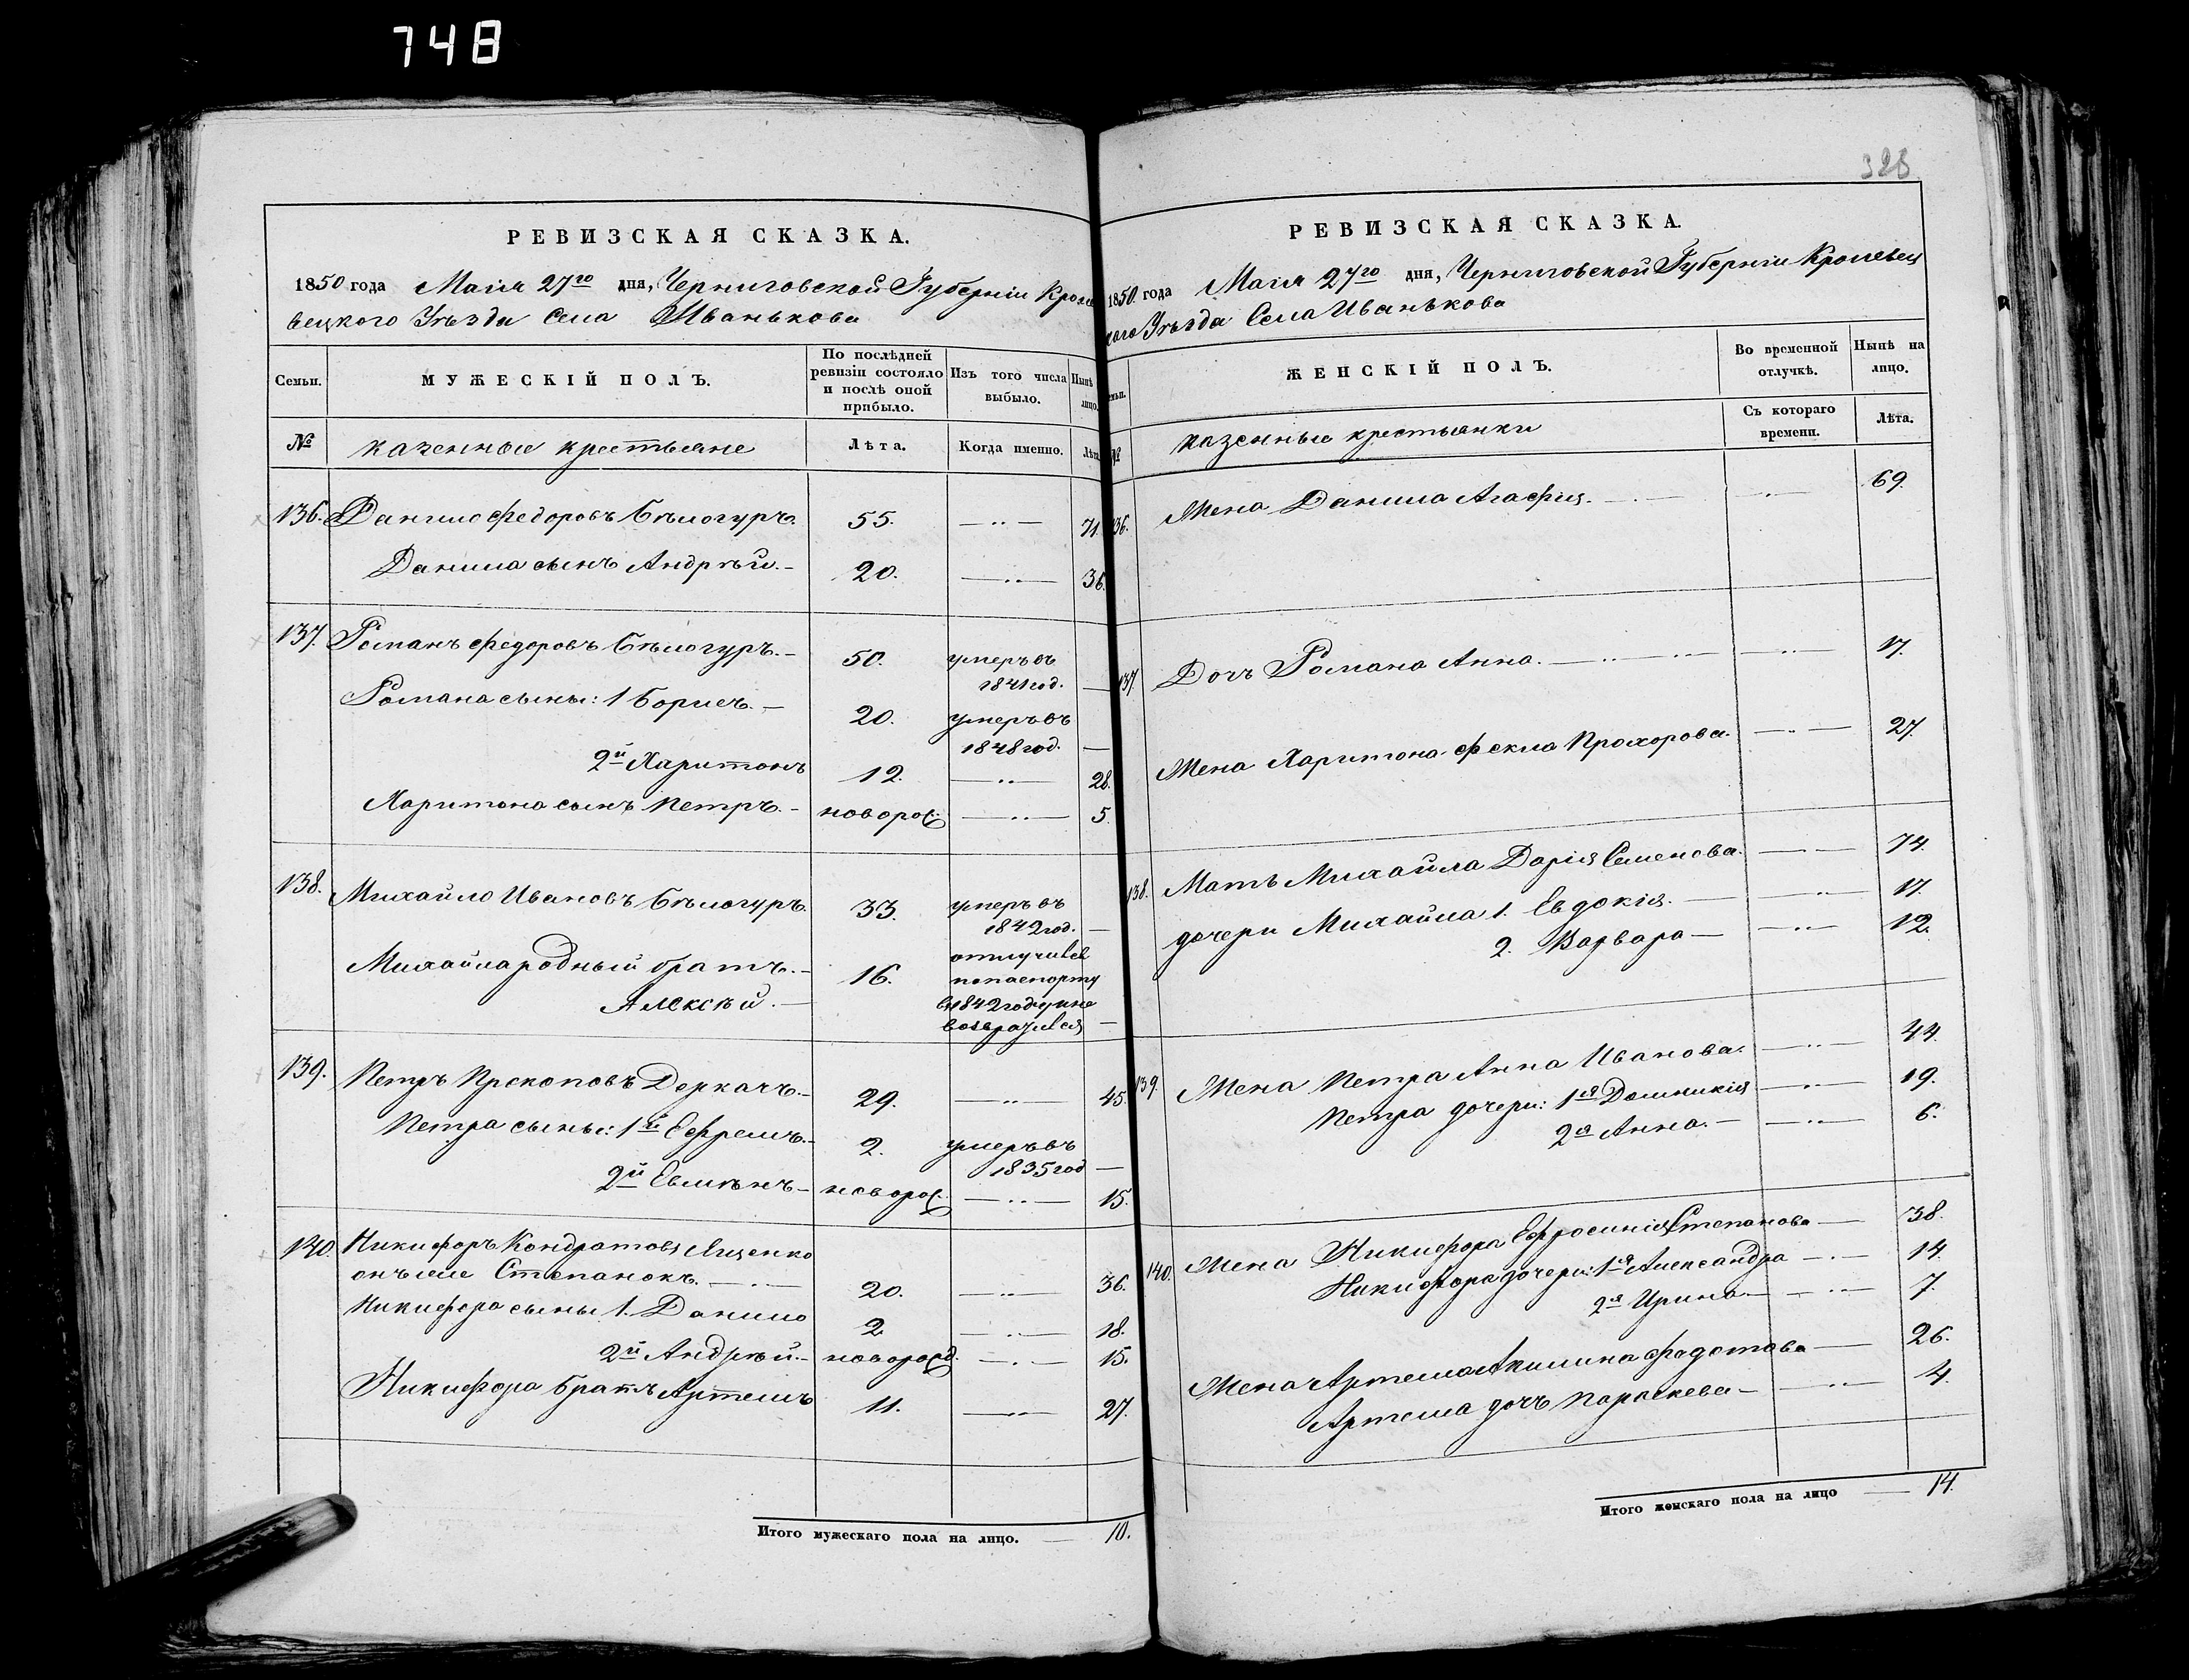 748
328
РЕВИЗСКАЯ СКАЗКА.
1850 года Маія 27го дня, Черниговской Губерніи Кроле
вецкого Уѣзда Села Иванькова
Семьи.
МУЖЕСКІЙ ПОЛЪ.
По послѣдней ревизіи состояло и послѣ оной прибыло.
Изъ того числа выбыло.
Нынѣ лицо.
№ казенные крестьяне Лѣта. Когда именно. Лѣта
136. Данило Федоровъ Бѣлогуръ. 55. — 71.
Данила сынъ Андрѣй. — 20. — 36.
137. Романъ Федоровъ Бѣлогуръ. — 50. умеръ въ
1841 год. —
Романа сыны: 1 Борисъ. — 20. умеръ въ
1848 год. —
2й Харитонъ 12. — 28.
Харитона сынъ Петръ. — новорож. — 5.
138. Михайло Ивановъ Бѣлогуръ. 33. умеръ въ
1842 год. —
Михайла родный братъ. — 16. отлучился
по паспорту
Алексѣй. — въ 1842 году и не
возвратился —
139. Петръ Прокоповъ Деркачъ. — 29. — 45.
Петра сыны: 1й Ефремъ. — 2. умеръ въ
1835 год —
2й Евмѣнъ — новорож. — 15.
140. Никифоръ Кондратовъ Лященко
онъ же Степанокъ. — 20. — 36.
Никифора сыны 1. Данило 2 — 18.
2й Андрѣй. — новорожд. — 15.
Никифора братъ Артемъ 11. — 27.
Итого мужескаго пола на лицо. — 10.
РЕВИЗСКАЯ СКАЗКА.
1850 года Маія 27го дня, Черниговской Губерніи Кролевец
кого Уѣзда Села Иванькова
емьи.
ЖЕНСКІЙ ПОЛЪ.
Во временной отлучкѣ.
Нынѣ на лицо.
№ казенные крестьянки Съ котораго времени. Лѣта.
136. Жена Данила Агафия. — 69.
137. Дочь Романа Анна. — 17.
Жена Харитона Фекла Прохорова. — 27.
138. Мать Михайла Дарія Семенова. — 74.
дочери Михайла 1. Евдокія. — 17.
2. Варвара — 12.
139. Жена Петра Анна Иванова. — 44.
Петра дочери: 1я Домникія — 19.
2я Анна. — 6.
140. Жена Никифора Ефросинія Степанова — 38.
Никифора дочери: 1я Александра — 14.
2я Ирина — 7.
Жена Артема Акилина Федотова — 26.
Артема дочь Параскева — 4.
Итого женскаго пола на лицо — 14.